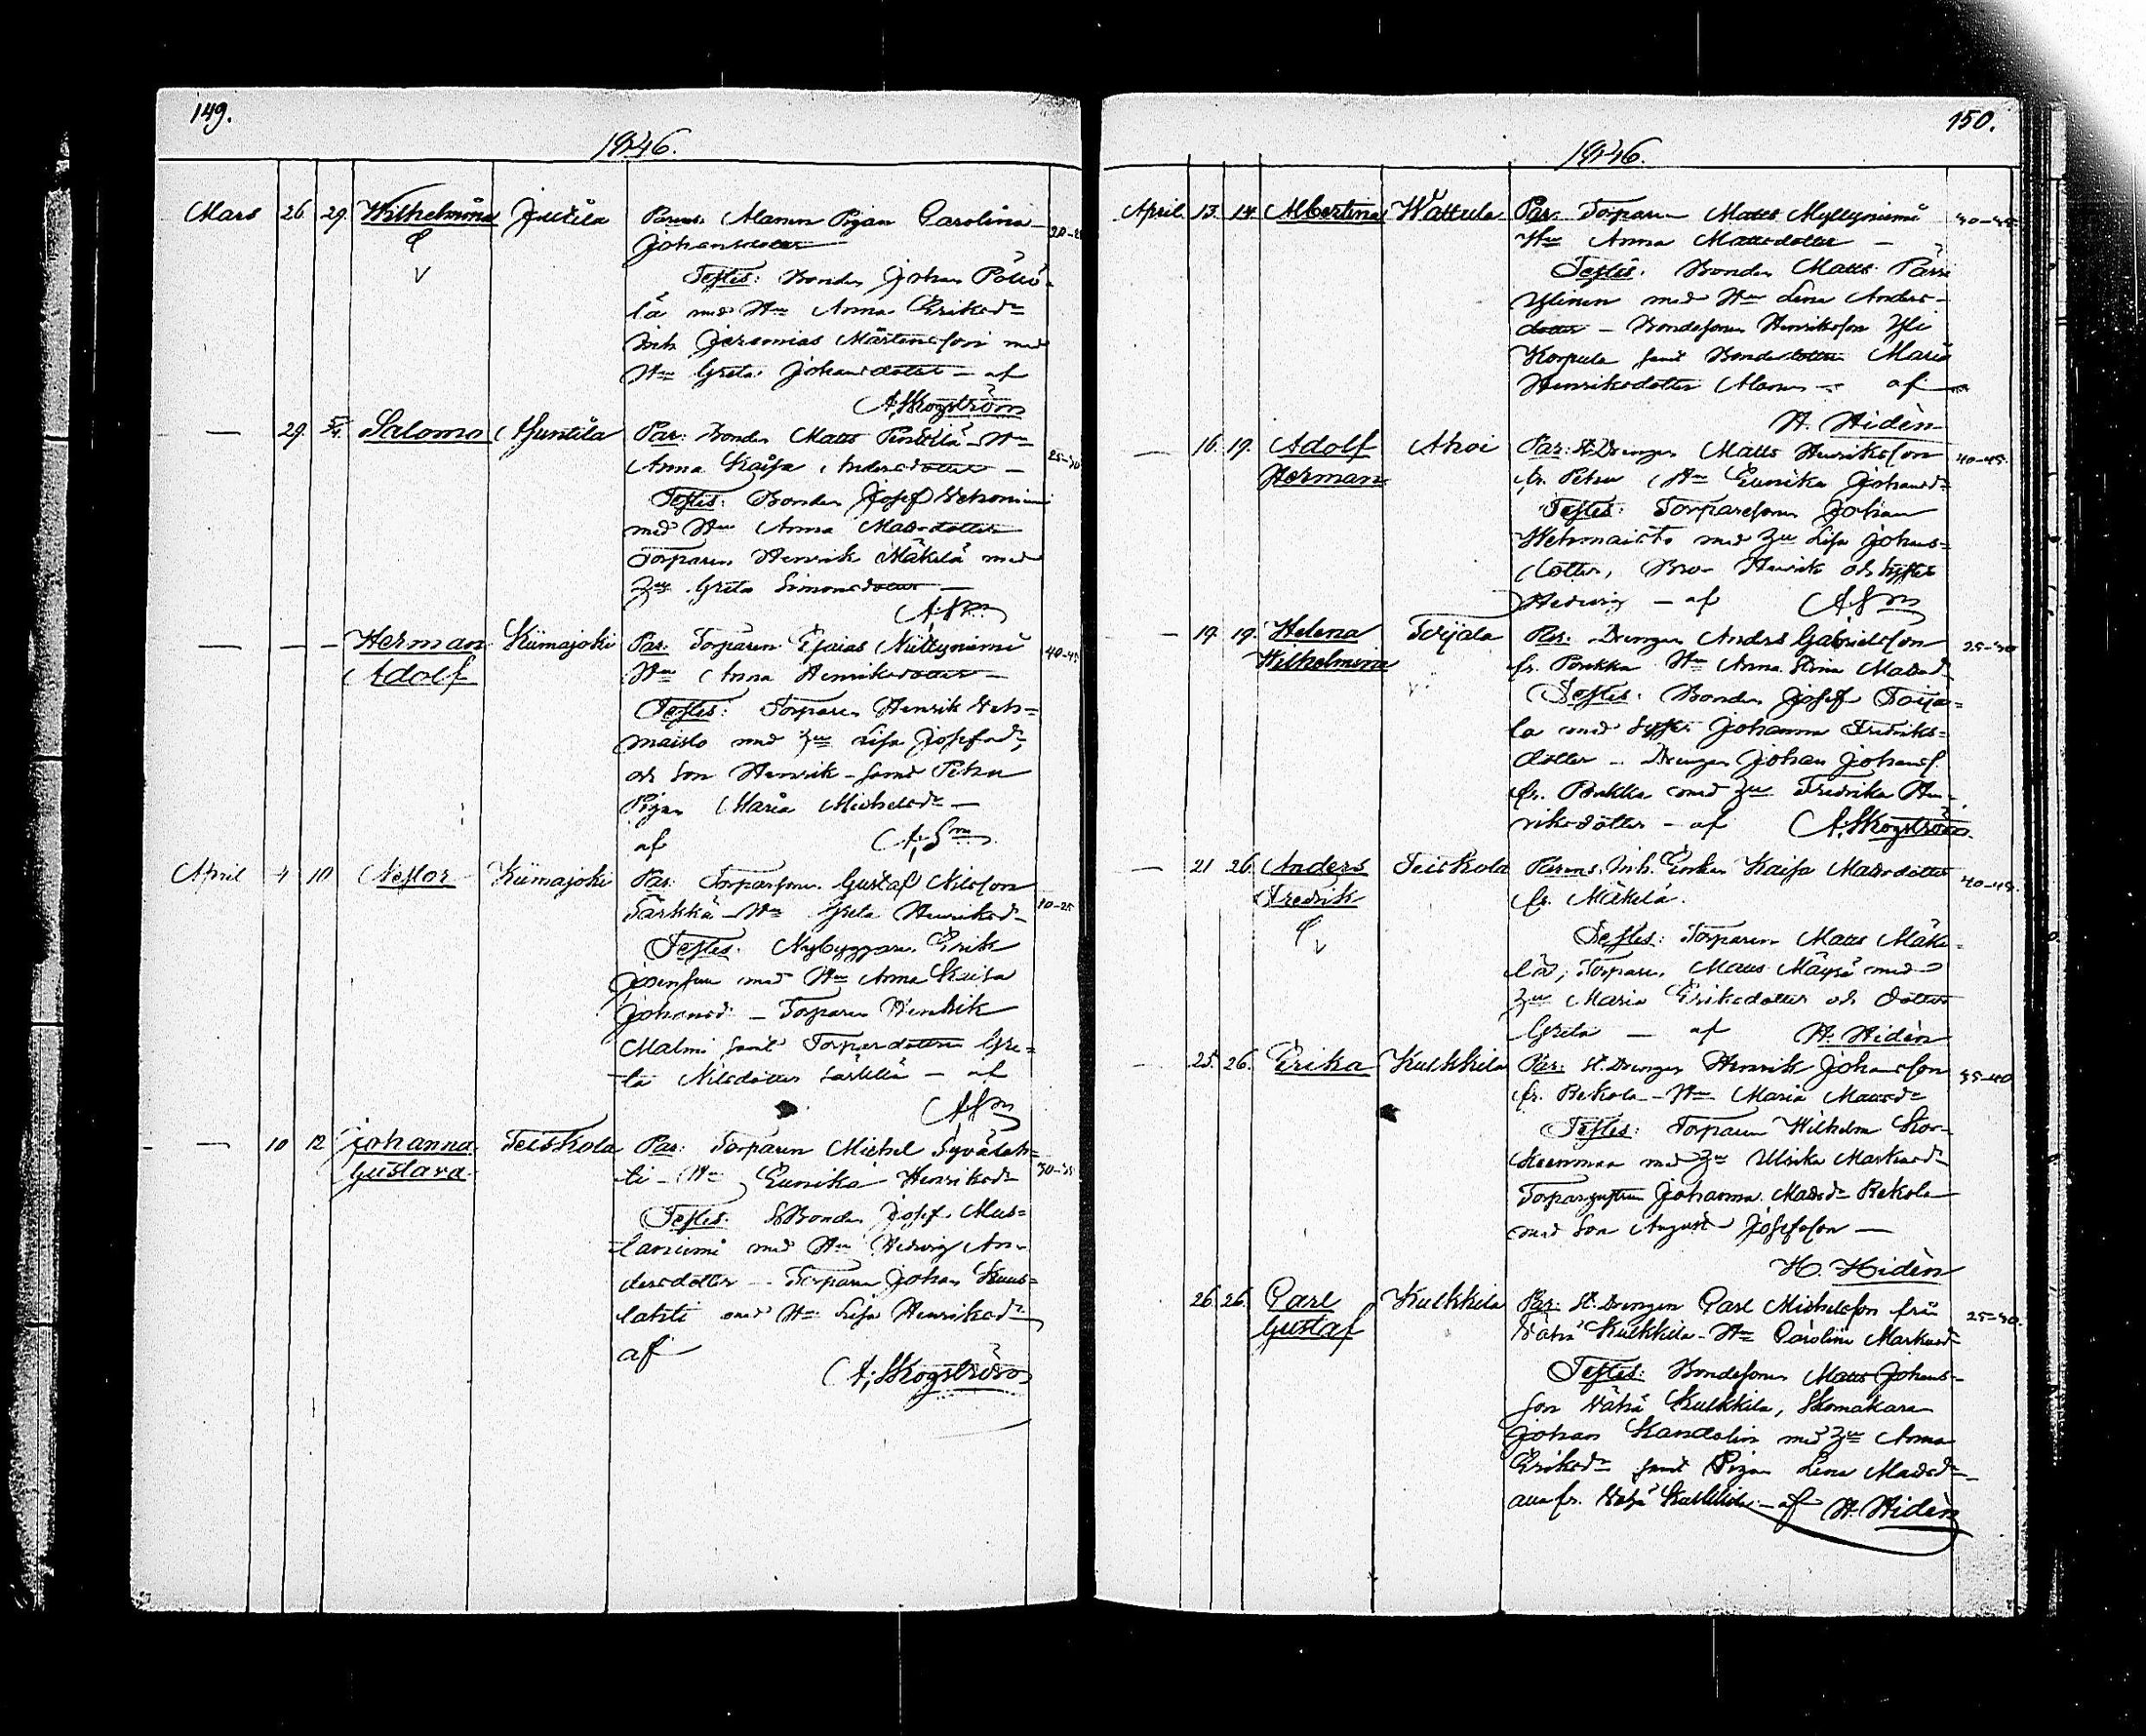 149.
1846.
Mars 26. 29. Wilhelmina Juttila Parens. Alamen Pigan Carolina 20-25
Johansdotter
Testes: Bonden Johan Pöllö-
lä med Hu Anna Eriksdr
Inh Jeremias Mårtensson med
Hu Greta Johansdotter - af
A. Skogström
— 29. 5/4. Salomo Huntila Par: Bonden Matts Penttilä - Hu 25-30
Anna Kaisa Andersdotter -
Testes: Bonden Josef Wehoniemi
med Hu Anna Matsdotter
Torparen Henrik Mäkelä med
Hu Greta Simonsdotter —
A. Sm
— — — Herman Kiimajoki Par: Torparen Esaias Niittyniemi 40-45
Adolf Hu Anna Henriksdotter —
Testes: Torparen Henrik Weh=
maisto med Hu Lisa Josefsdr,
och Son Henrik - samt Petru
Pigan Maria Michelsdr —
af A. Sm
April 4 10 Nestor Kiimajoki Par: Torparsonen Gustaf Nilsson 20-25
Särkkä - Hu Greta Henriksdr
Testes: Nybyggaren Erik
med Hu Anna Kaisa
Johansdr - Torparen Henrik
Malmi samt Torpardottren Gre=
ta Nilsdotter Särkkä - af
A. Sm
— 10 12 Johanna Teiskola Par: Torparen Michel Syvälah= 30-35
Gustava ti - Hu Eunika Henriksdr
Testes: Bonden Josef Mus=
taniemi med Hu Hedwig An-
dersdotter - Torparen Johan Kuus=
lahti med Hu Lisa Henriksdr
af
A. Skogström
150.
1846.
April 13. 14. Albertina Wattula Par: Torparen Matts Myllyniemi 40-45
Hu Anna Mattsdotter -
Testes: Bonden Matts Pärri
Ylinen med Hu Lena Anders-
dotter - Bondesonen Henriksson Yli
Korpula samt Bondedottren Maria
Henriksdotter Alanen - af
H. Hidén
— 16. 19. Adolf Ahoi Par: St. Drengen Matts Henriksson 40-45.
Herman fr. Petru Hu Eunika Johansdr
Testes: Torparesonen Johan
Wehmaisto med Hu Lisa Johans=
dotter, Bror Henrik och Syster
Hedwig - af A. Sm
— 19. 19. Helena Toijala Par: Drengen Anders Gabrielsson 25-30
Wilhelmina fr. Pirkka Hu Anna Stina Matsdr
Testes: Bonden Josef Toija=
la med Syster Johanna Fredriks=
dotter - Drengen Johan Johanss.
fr. Pirkka med Hu Fredrika Hen-
riksdotter - af A. Skogström
— 21 26. Anders Teiskola Parens. Inh. Enkan Kaisa Matsdotter 40-45.
Fredrik fr. Mäkelä.
Testes: Torparen Matts Mäke=
lä, Torparen Matts Mäyrä med
Hu Maria Eriksdotter och dotter
Greta — af H. Hidén
— 25. 26. Erika Kulkkila Par: St. Drengen Henrik Johansson 35-40
fr. Rekola - Hu Maria Mattsdr
Testes: Torparen Wilhelm Kor-
keenmaa med Hu Ulrika Markusdr
Torparhustrun Johanna Matsdr Rekola
med Son August Josefsson —
H. Hidén
26. 26. Carl Kulkkila Par: St. Drengen Carl Michelsson från 25-30.
Gustaf Wähä Kulkkila - Hu Carolina Markusdr
Testes: Bondesonen Matts Johans-
son Wähä Kulkkila, Skomakaren
Johan Kandelin med Hu Anna
Eriksdr samt Pigan Lena Matsdr
alla fr. Wähä Kulkkila - af H. Hidén